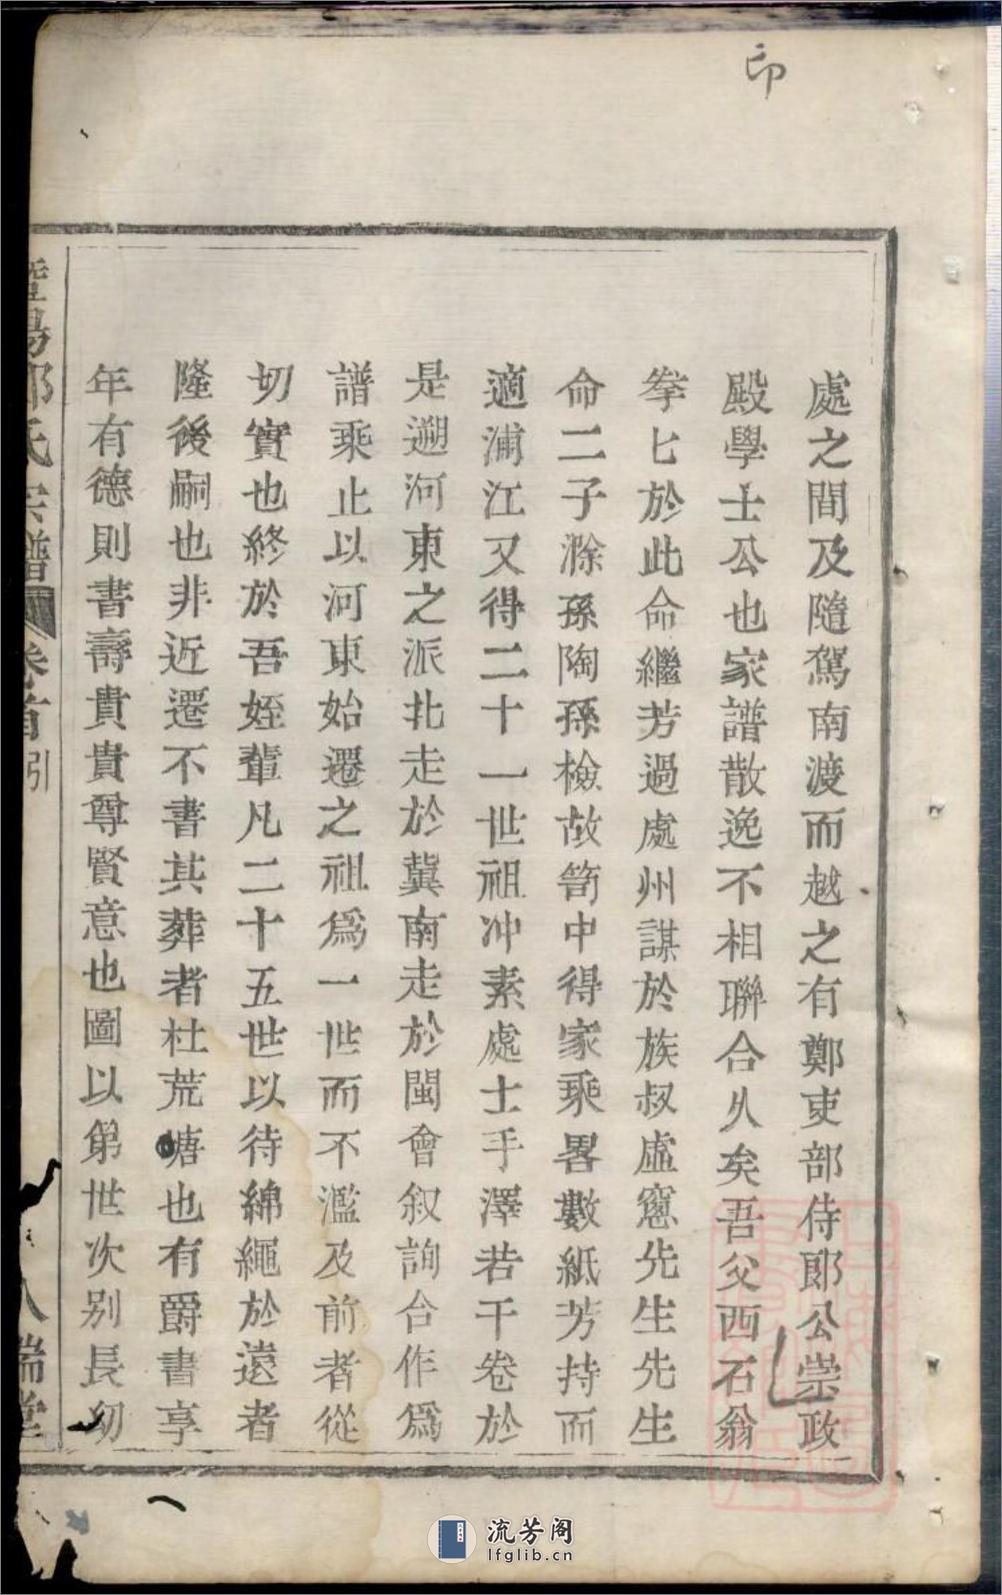 印
處之間及隨駕南渡而越之有鄭吏部侍郎公崇政
殿學士公也家譜散逸不相聯合久矣吾父西石翁
拳匕於此命繼芳過處州謀於族叔虛窻先生先生
命二子滁孫陶孫檢故笥中得家乘畧數紙芳持而
適浦江又得二十一世祖冲素處士手澤若干卷於
是遡河東之派北走於冀南走於閩會叙詢合作爲
譜乘止以河東始遷之祖爲一世而不濫及前者從
切實也終於吾姪輩凡二十五世以待綿繩於遠者
隆後嗣也非近遷不書其葬者杜荒塘也有爵書享
年有德則書壽貴貴尊賢意也圖以第世次别長幼
暨陽鄭氏宗譜 卷首 引 八 瑞堂
流芳阁
lfglib.cn